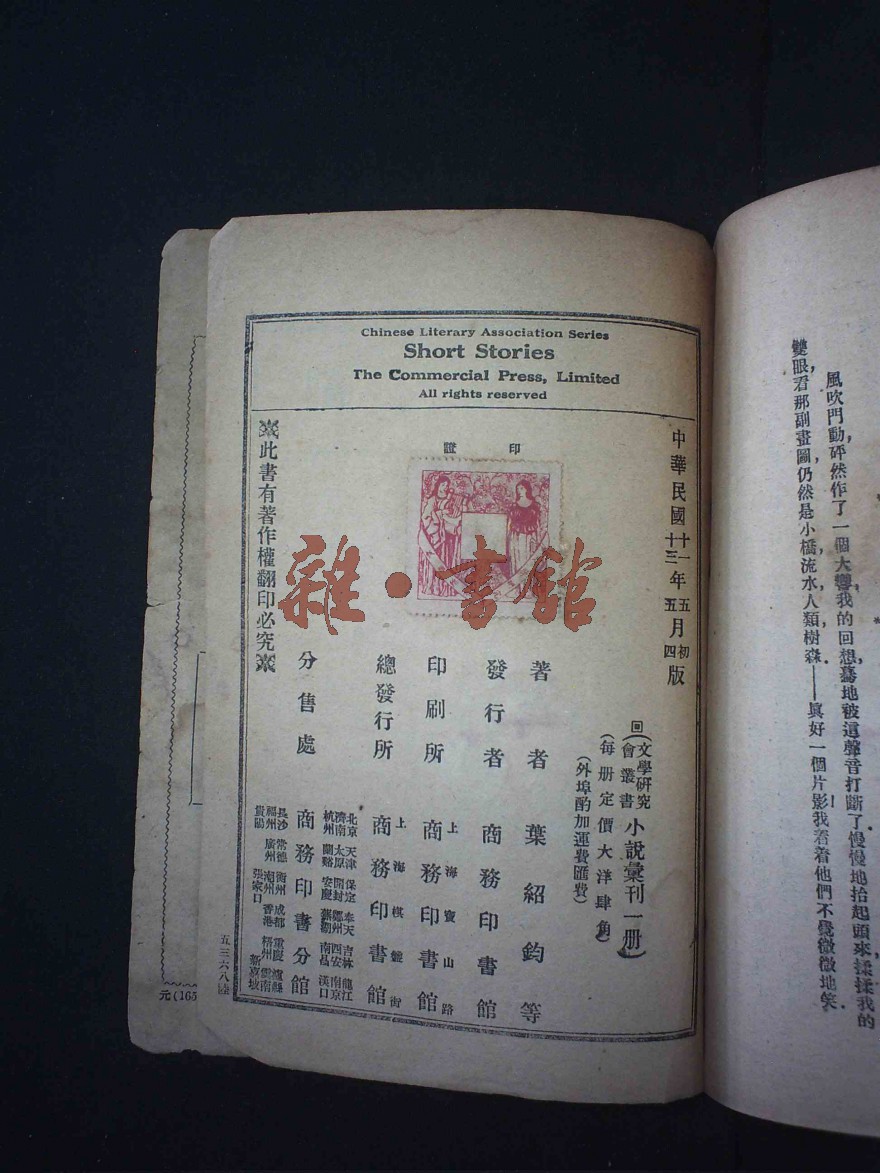 Chinese Literary Association Series
Short Stories
The Commercial Press, Limited
All rights reserved
中華民國十一年五月初版
十三年五月四版
回(文學研究會叢書)小說彙刊一冊
(每冊定價大洋肆角)
(外埠酌加運費匯費)
印證
著者 葉紹鈞等
發行者 商務印書館
印刷所 上海寶山路 商務印書館
總發行所 上海棋盤街 商務印書館
分售處 商務印書分館
北京 天津 保定 奉天 吉林 龍江
濟南 太原 開封 鄭州 西安 南京
杭州 蘭谿 安慶 蕪湖 南昌 漢口
長沙 常德 衡州 成都 重慶 瀘縣
福州 廣州 潮州 香港 梧州 雲南
貴陽 張家口 新嘉坡
此書有著作權翻印必究
五三六八陸
雜·書館
元(165
風吹門動,砰然作了一個大響,我的回想,驀地被這聲音打斷了!慢慢地抬起頭來,揉揉我的
雙眼,看那副畫圖,仍然是小橋,流水,人類,樹森——眞好一個片影!我看着他們不覺微微地笑